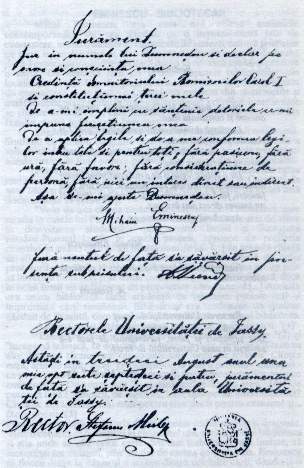 Jurământ.
Jur în numele lui Dumnezeu și declar pe
onoare și consciința mea
Credința Domnitoriului Românilor Carol I
și constituțiunei țării mele
De a-mi împlini cu sânțenie datoriile ce-mi
impune funcțiunea mea
De a aplica legile și de a me conforma legi-
lor întru tote și pentru toți, fără pasiune, fără
ură, fără favore, fără considerațiune de
persónă, fără nici un interes direct sau indirect.
Așa să-mi ajute Dumnezeu.
Mihail Eminescu
de față s'a săvârșit în pre-
sența subscrisului.
Rectorele Universităței de Jassy
Astă-di în trei-deci August anul una
mie opt sute septe-deci și patru, jurământul
de față s'a săvârșit în sala Universită-
ței de Jassy.
Rector Ștefanu Micle